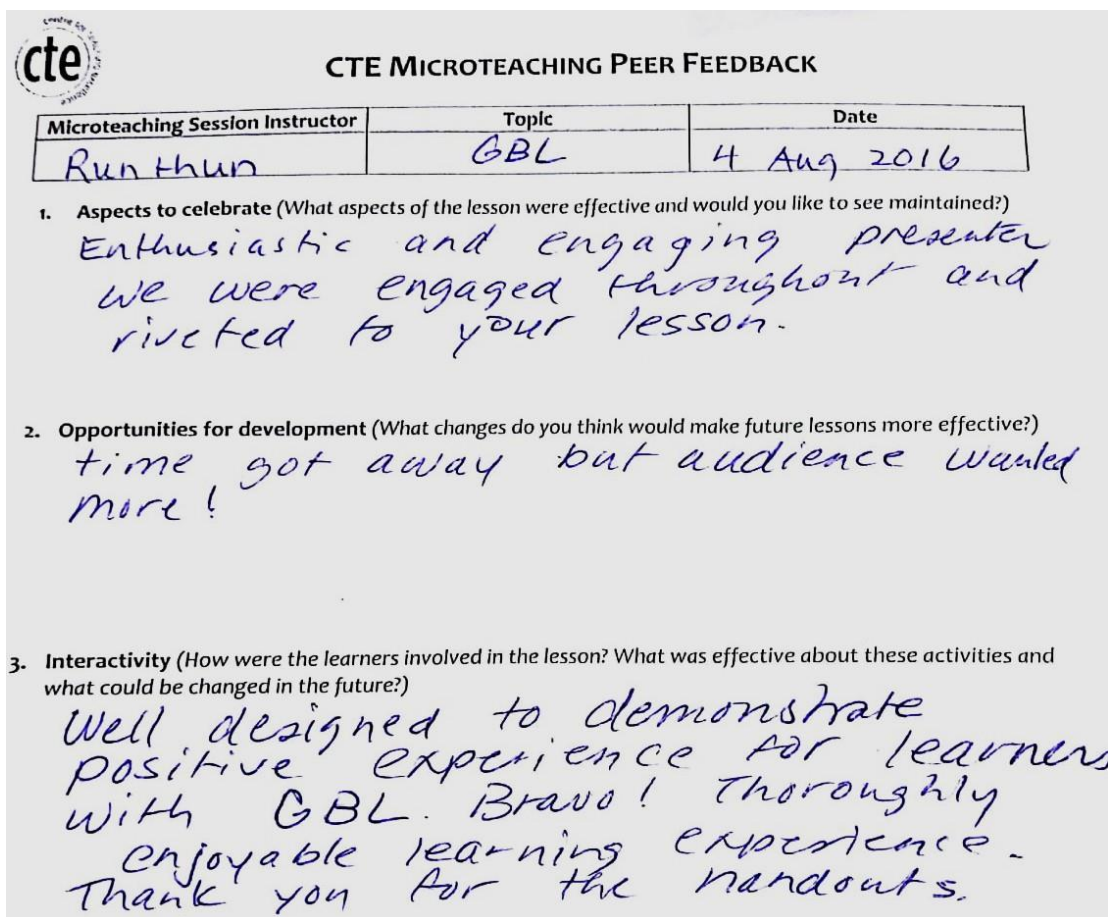 Centre for Teaching Excellence
cte
CTE MICROTEACHING PEER FEEDBACK
Microteaching Session Instructor Topic Date
Runthun GBL 4 Aug 2016
1. Aspects to celebrate (What aspects of the lesson were effective and would you like to see maintained?)
Enthusiastic and engaging presenter
we were engaged throughout and
riveted to your lesson.
2. Opportunities for development (What changes do you think would make future lessons more effective?)
time got away but audience wanted
more!
3. Interactivity (How were the learners involved in the lesson? What was effective about these activities and
what could be changed in the future?)
Well designed to demonstrate
positive experience for learners
with GBL. Bravo! Thoroughly
enjoyable learning experience.
Thank you for the handouts.